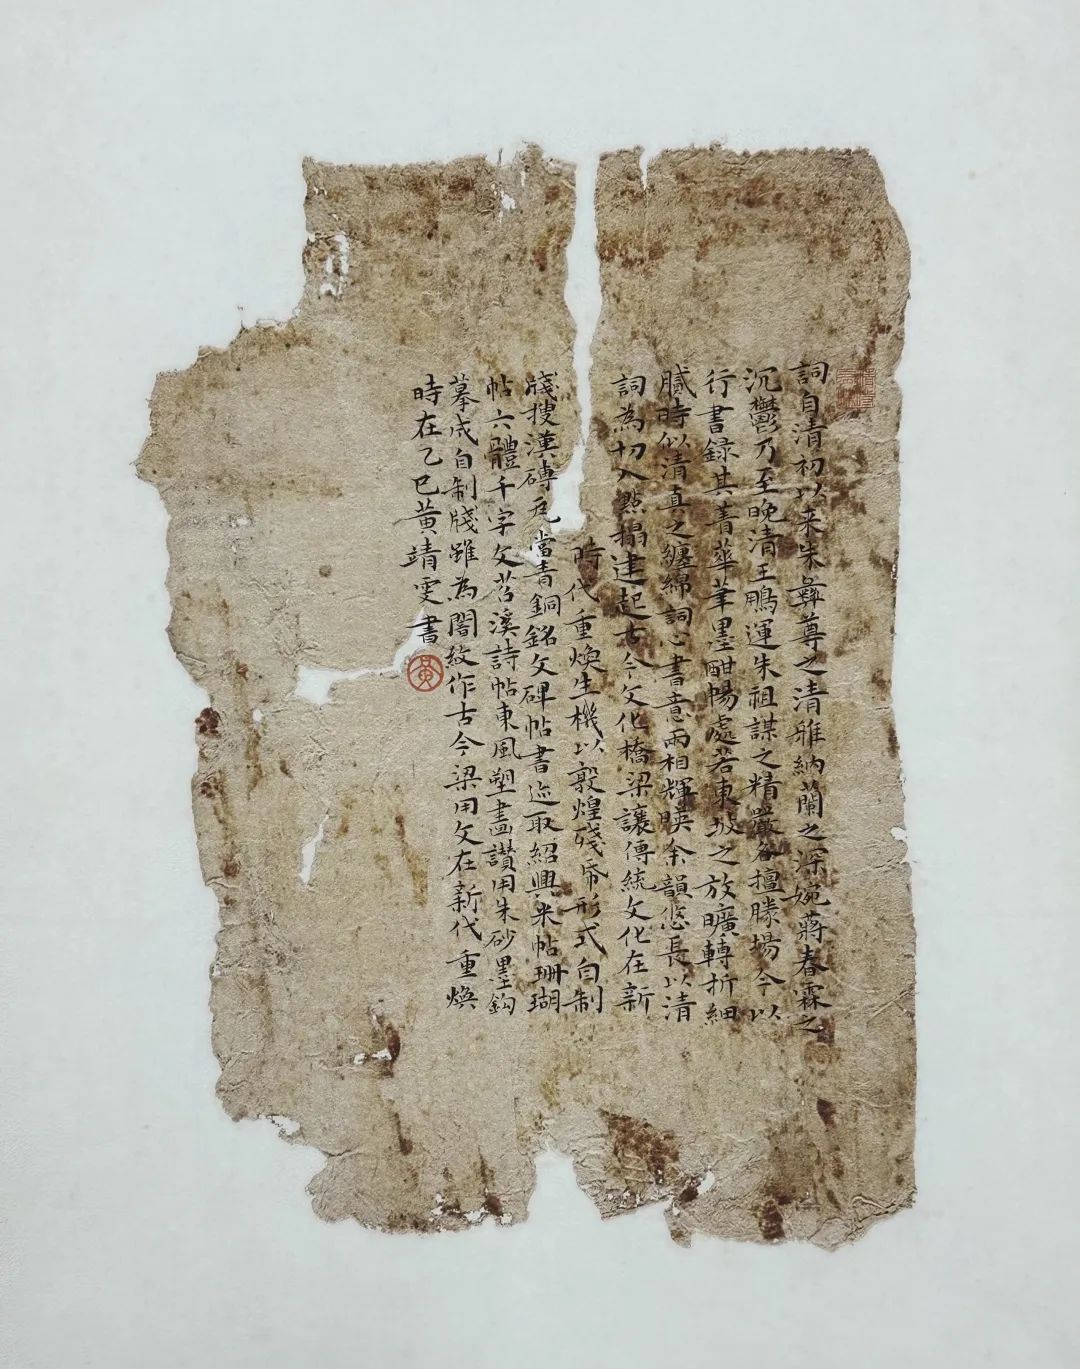 詞自清初以来朱彝尊之清雅納蘭之深婉蔣春霖之
沉鬱乃至晚清王鵬運朱祖謀之精嚴各擅勝場今以
行書録其菁華筆墨酣暢處若東坡之放曠轉折細
膩時似清真之纏綿詞心書意兩相輝暎余韻悠長以清
詞為切入點搨建起古今文化橋梁讓傳統文化在新
時代重煥生機以敦煌殘帋形式自制
牋搜漢磚瓦當青銅銘文碑帖書迹取紹興米帖珊瑚
帖六體千字文苕溪詩帖東風塑畫讃用朱砂墨鈎
摹成自制牋雖為闇紋作古今梁用文在新代重煥
時在乙巳黄靖雯書
黃